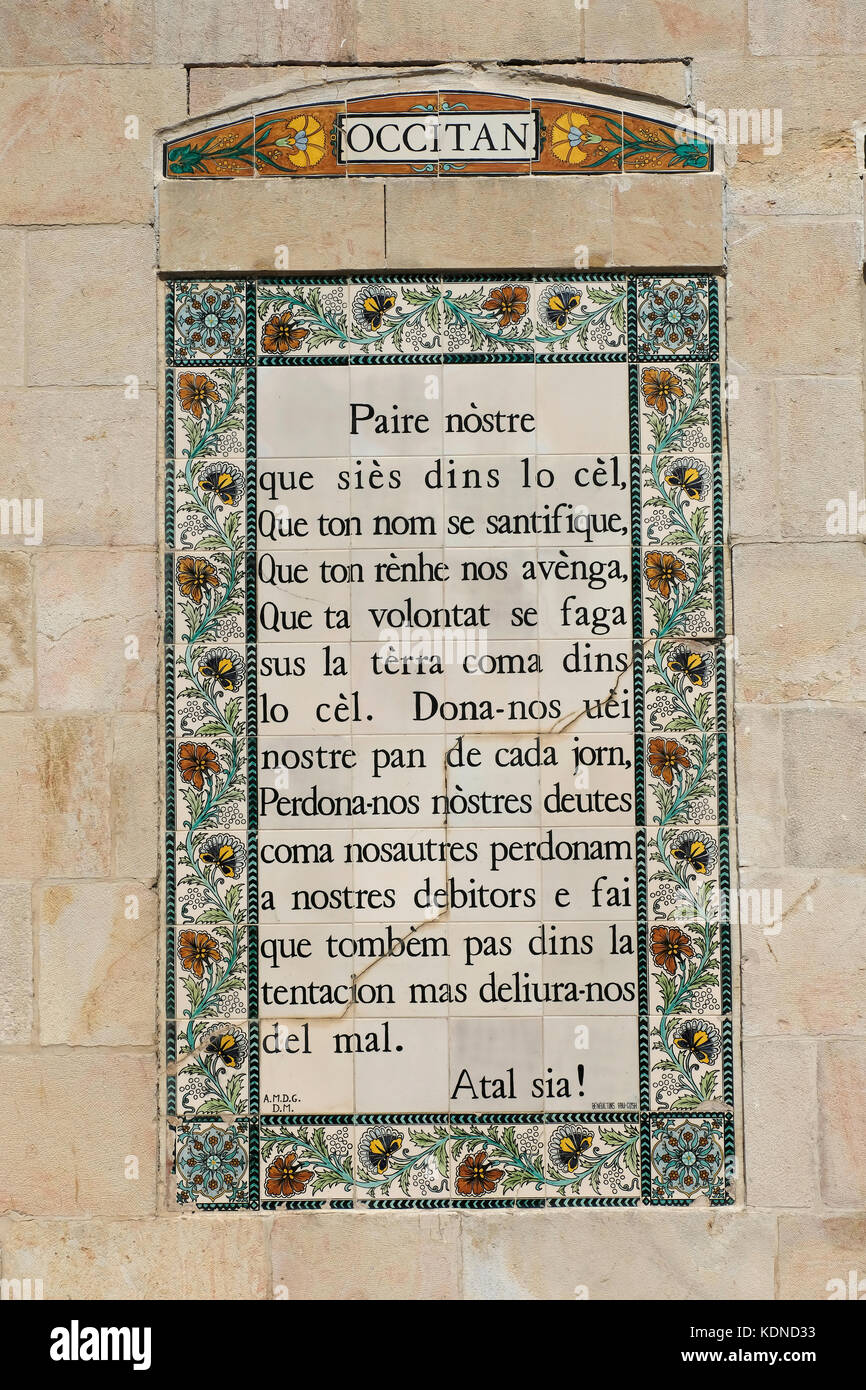 OCCITAN
Paire nòstre
que siès dins lo cèl,
Que ton nom se santifique,
Que ton rènhe nos avènga,
Que ta volontat se faga
sus la tèrra coma dins
lo cèl. Dona-nos uèi
nostre pan de cada jorn,
Perdona-nos nòstres deutes
coma nosautres perdonam
a nostres debitors e fai
que tombèm pas dins la
tentacion mas deliura-nos
del mal.
Atal sia!
A.M.D.G.
D.M.
alamy
Image ID: KDND33
www.alamy.com